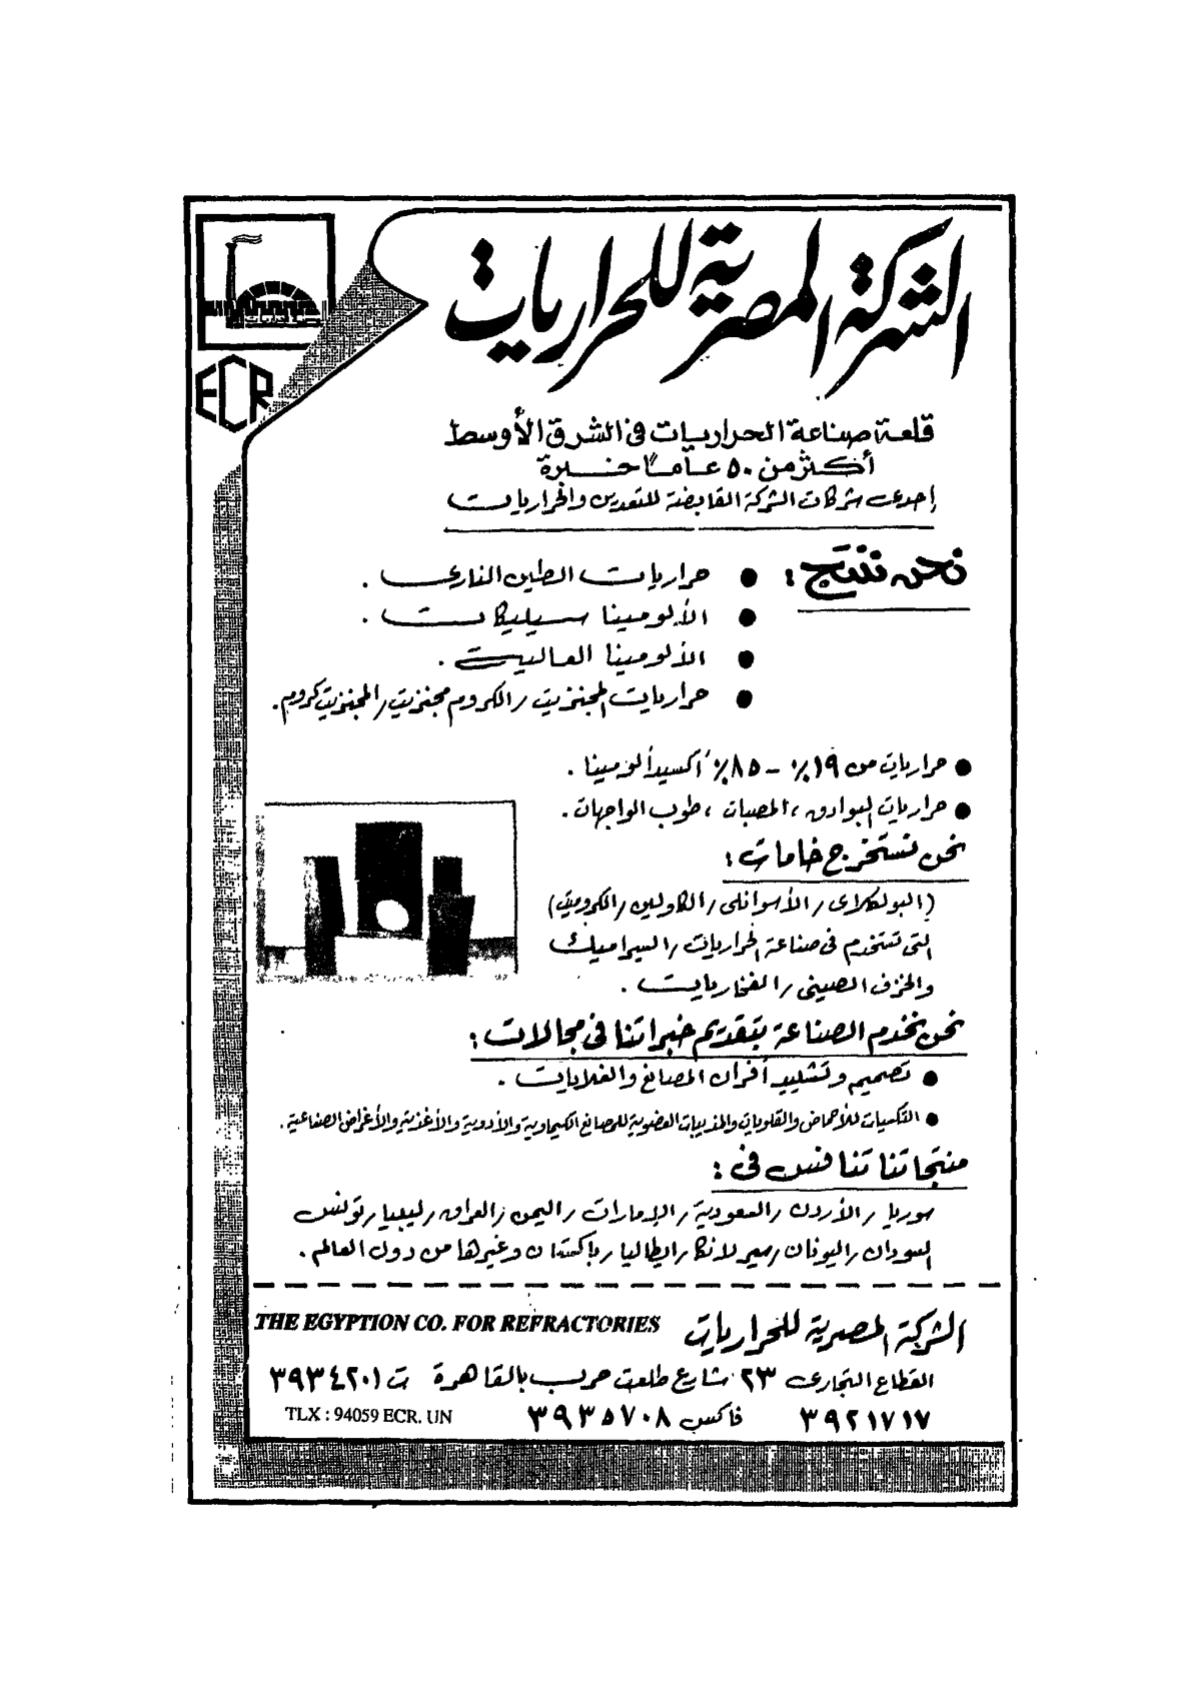 الشركة المصرية للحراريات
ECR
قلعة صناعة الحراريات فى الشرق الأوسط
أكثر من ٥٠ عامًا خبرة
إحدى شركات الشركة القابضة للتعدين والحراريات
نحن ننتج :
● حراريات الطين النارى .
● الألومينا سيليكات .
● الألومينا العالية .
● حراريات المجنزيت / الكروم مجنزيت / المجنزيت كروم .
● حراريات من ١٩٪ - ٨٥٪ أكسيد ألومينا .
● حراريات البوادق ، المصبات ، طوب الواجهات .
نحن نستخرج خامات :
(البولكلاى / الأسوانلى / الكاولين / الكروميت)
التى تستخدم فى صناعة الحراريات / السيراميك
والخزف الصينى / الفخاريات .
نحن نخدم الصناعة بتقديم خبراتنا فى مجالات :
● تصميم وتشييد أفران المصانع والغلايات .
● التكسيات للأحماض والقلويات والمذيبات العضوية للمصانع الكيماوية والأدوية والأغذية والأغراض الصناعية .
منتجاتنا تنافس فى :
سوريا / الأردن / السعودية / الإمارات / اليمن / العراق / ليبيا / تونس
السودان / اليونان / سيرلانكا / ايطاليا / باكستان وغيرها من دول العالم .
الشركة المصرية للحراريات THE EGYPTION CO. FOR REFRACTORIES
القطاع التجارى ٢٣ شارع طلعت حرب بالقاهرة ت ٣٩٣٤٢٠١
٣٩٢١٧١٧ فاكس ٣٩٣٥٧٠٨ TLX : 94059 ECR. UN